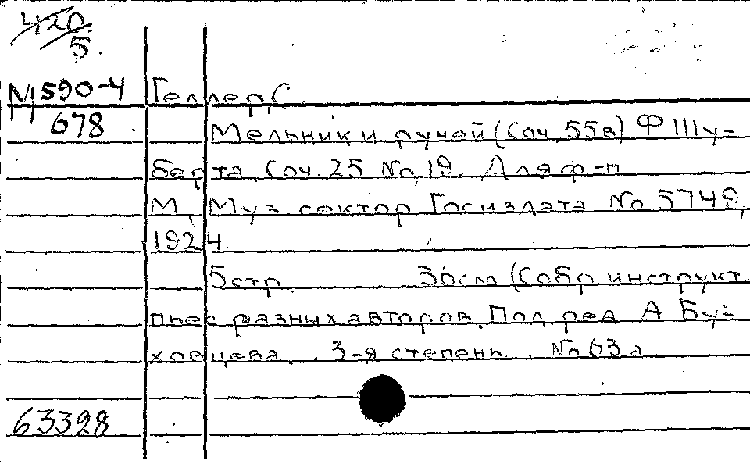 420
5.
М 590-4
678
Геллер, С.
Мельник и ручей (Соч. 55а) Ф. Шу-
берта Соч. 25 No 19. Для ф-п
М., Муз сектор Госиздата No 5749,
1924
5 стр. 36 см (Собр инструкт
пьес разных авторов. Под ред А Бу-
ховцева. 3-я степень. No 63а
63328